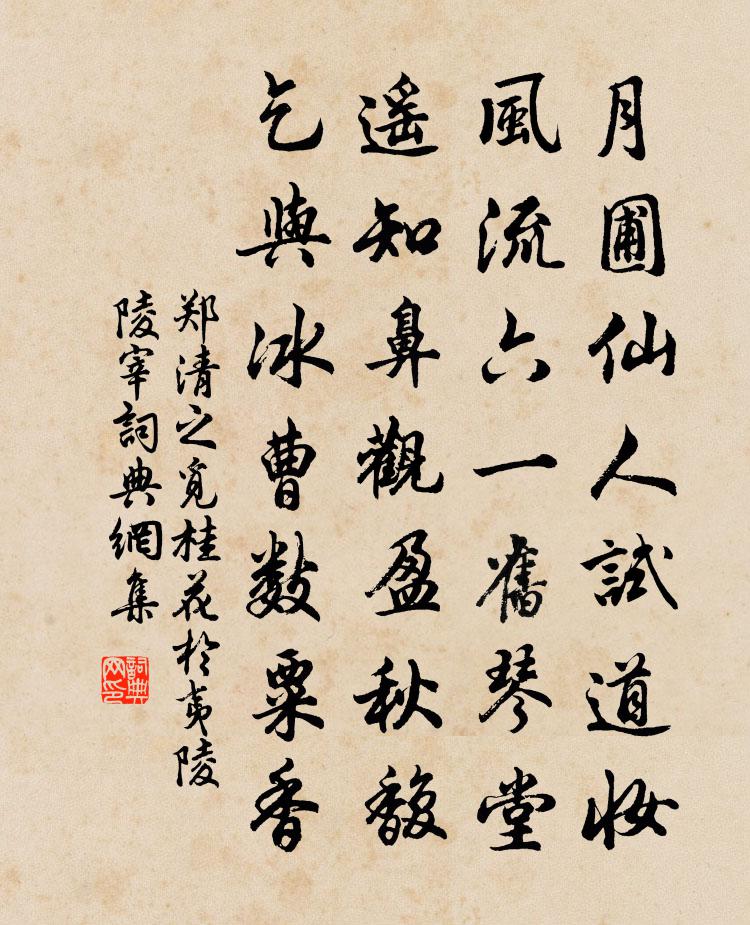 月圃仙人試道妝
風流六一舊琴堂
遥知鼻觀盈秋馥
乞與冰曹数粟香
郑清之覓桂花於夷陵
陵宰詞典網集
詞典网印